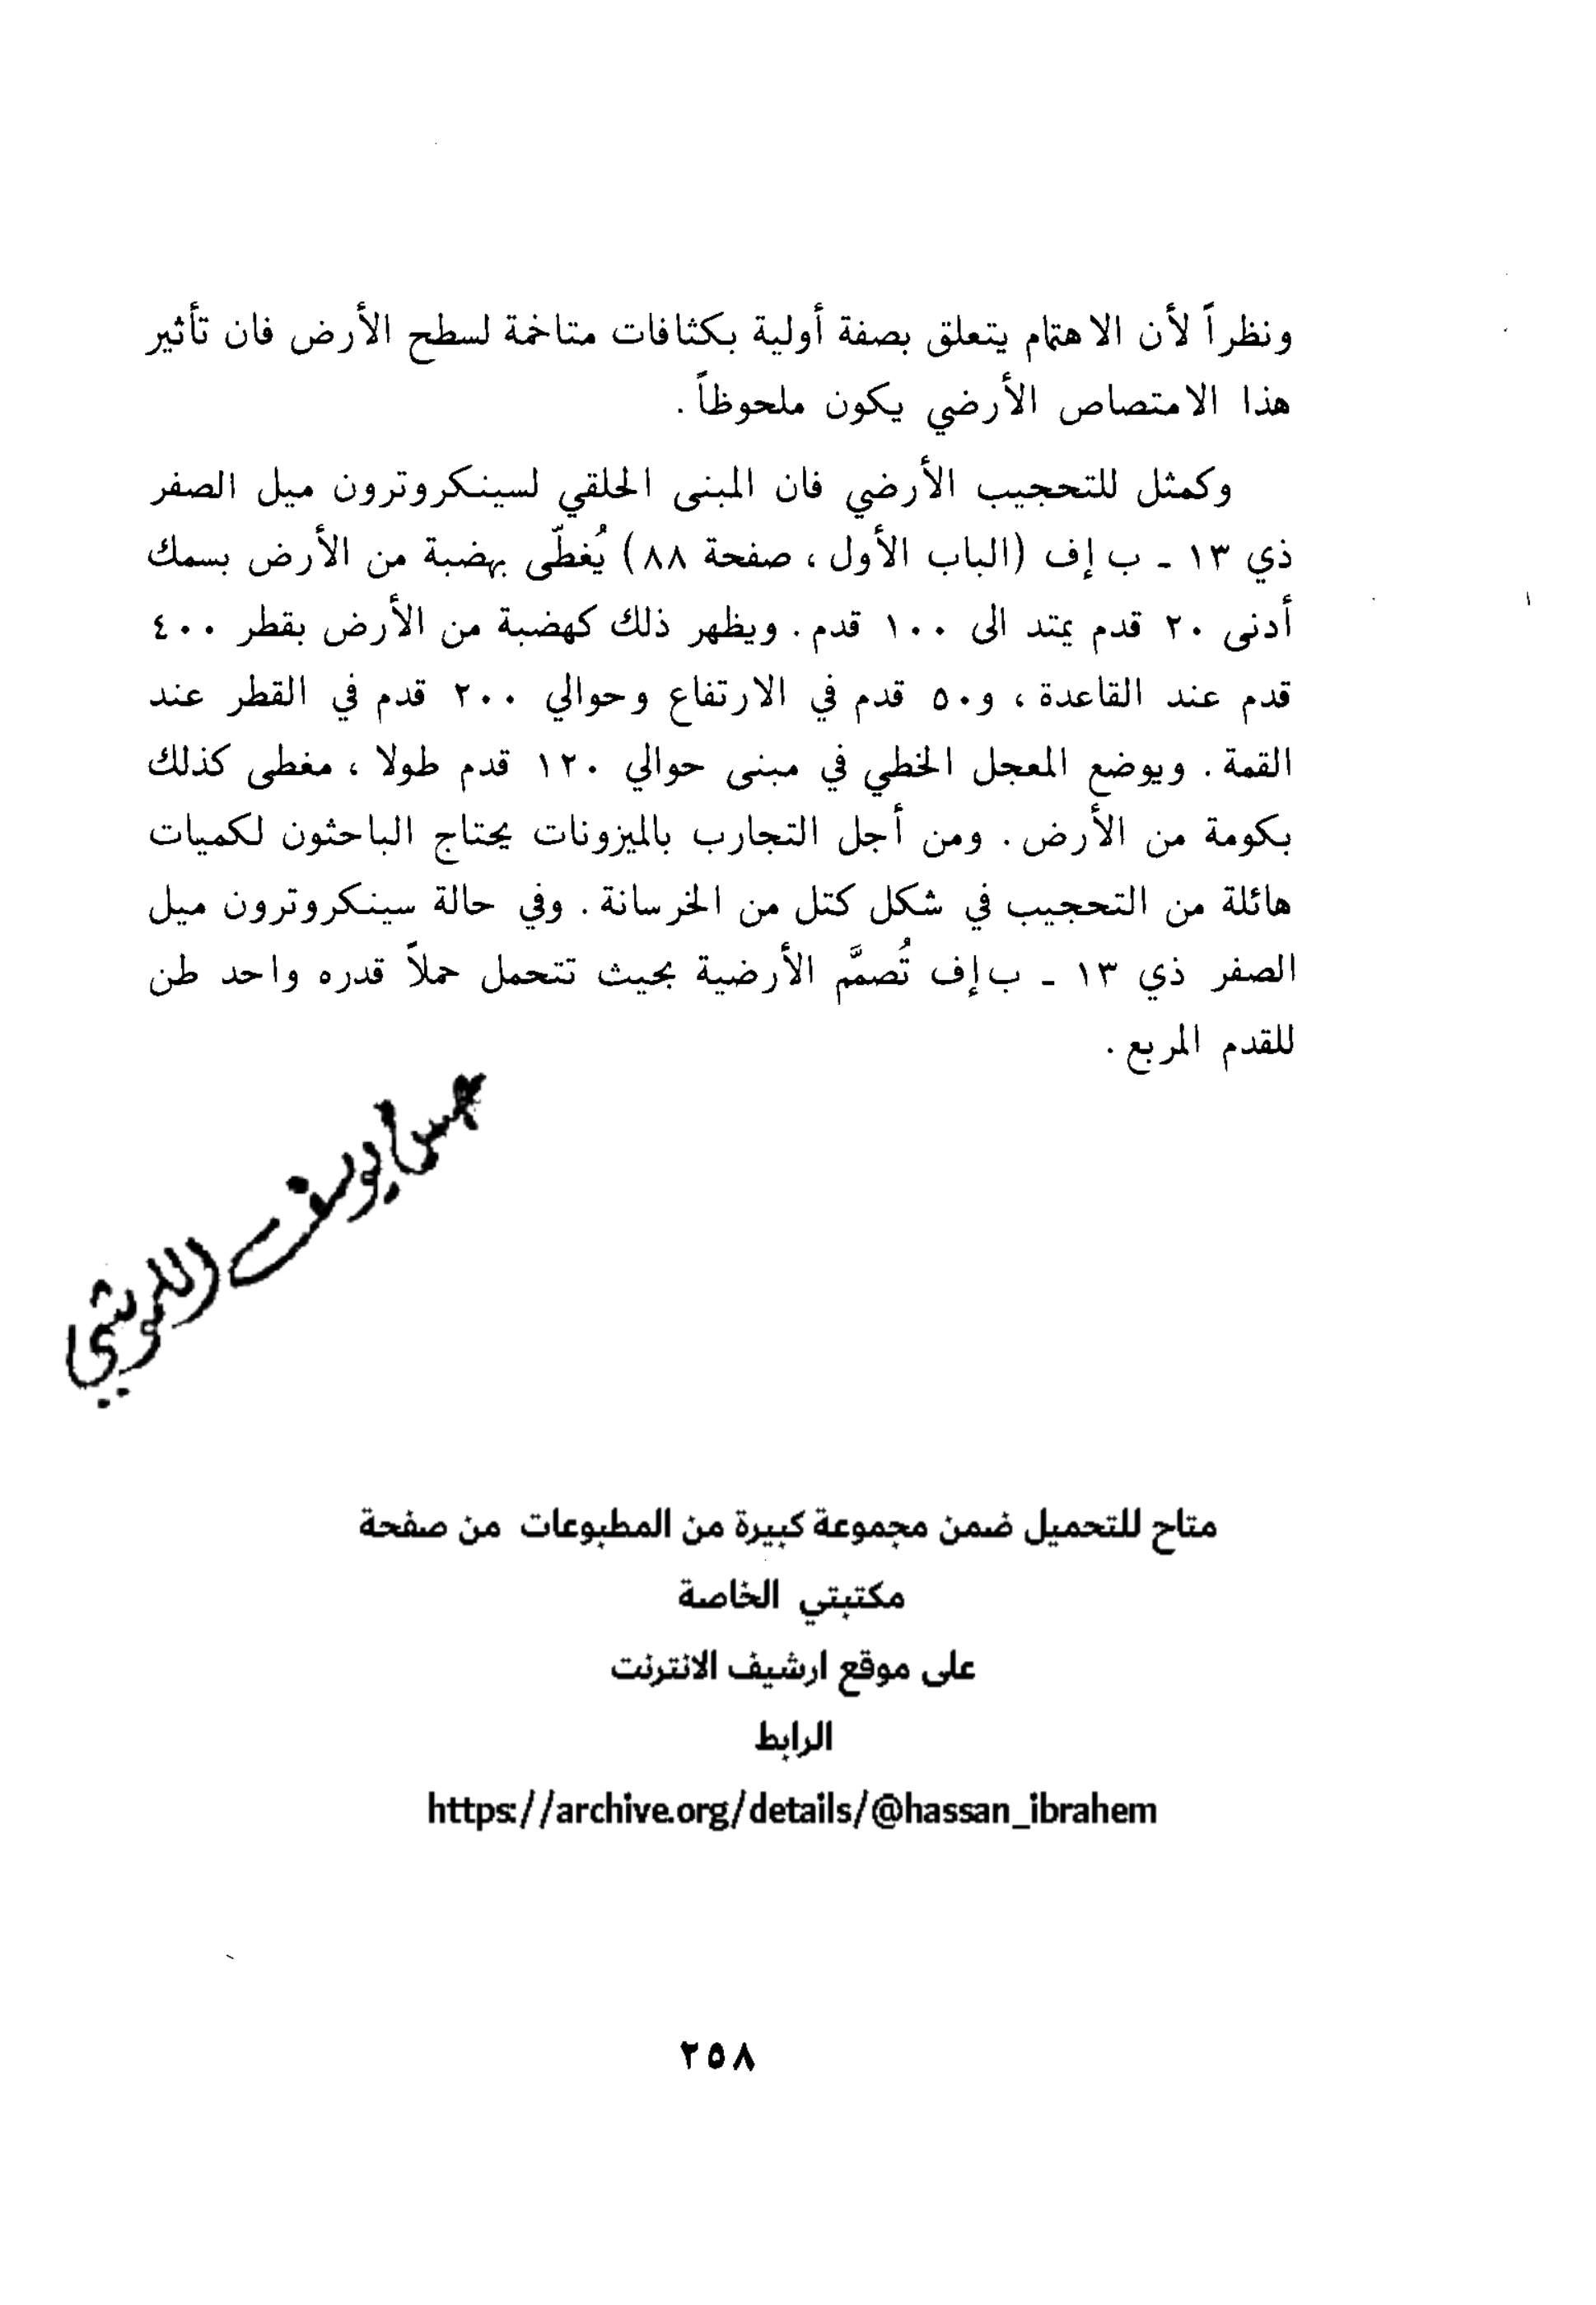 ونظراً لأن الاهتمام يتعلق بصفة أولية بكثافات متاخمة لسطح الأرض فان تأثير
هذا الامتصاص الأرضي يكون ملحوظاً .
وكمثل للتحجيب الأرضي فان المبنى الحلقي لسينكروترون ميل الصفر
ذي ١٣ ـ ب إف (الباب الأول ، صفحة ٨٨) يُغطّى بهضبة من الأرض بسمك
أدنى ٢٠ قدم يمتد الى ١٠٠ قدم . ويظهر ذلك كهضبة من الأرض بقطر ٤٠٠
قدم عند القاعدة ، و٥٠ قدم في الارتفاع وحوالي ٢٠٠ قدم في القطر عند
القمة . ويوضع المعجل الخطي في مبنى حوالي ١٢٠ قدم طولا ، مغطى كذلك
بكومة من الأرض . ومن أجل التجارب بالميزونات يحتاج الباحثون لكميات
هائلة من التحجيب في شكل كتل من الخرسانة . وفي حالة سينكروترون ميل
الصفر ذي ١٣ ـ ب إف تُصمَّم الأرضية بحيث تتحمل حملاً قدره واحد طن
للقدم المربع .
يوسف
متاح للتحميل ضمن مجموعة كبيرة من المطبوعات من صفحة
مكتبتي الخاصة
على موقع ارشيف الانترنت
الرابط
https://archive.org/details/@hassan_ibrahem
٢٥٨